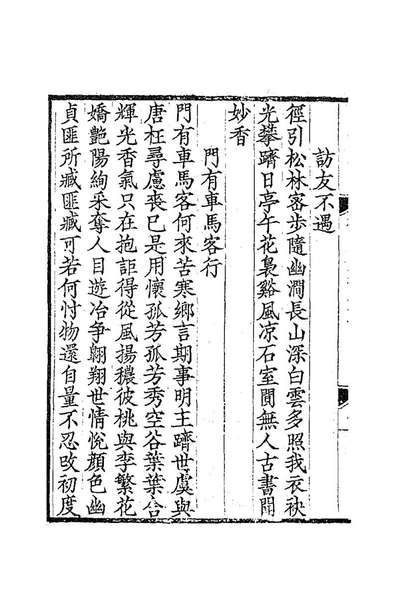 訪友不遇
徑引松林客步隨幽澗長山深白雲多照我衣袂
光攀躋日亭午花裊谿風凉石室閴無人古書聞
妙香
門有車馬客行
門有車馬客何來苦寒鄉言期事明主躋世虞與
唐枉尋慮喪已是用懷孤芳孤芳秀空谷葉葉含
輝光香氣只在抱詎得從風揚穠彼桃與李繁花
嬌艶陽絢采奪人目遊冶争翺翔世情悅顔色幽
貞匪所臧匪臧可若何忖物還自量不忍改初度